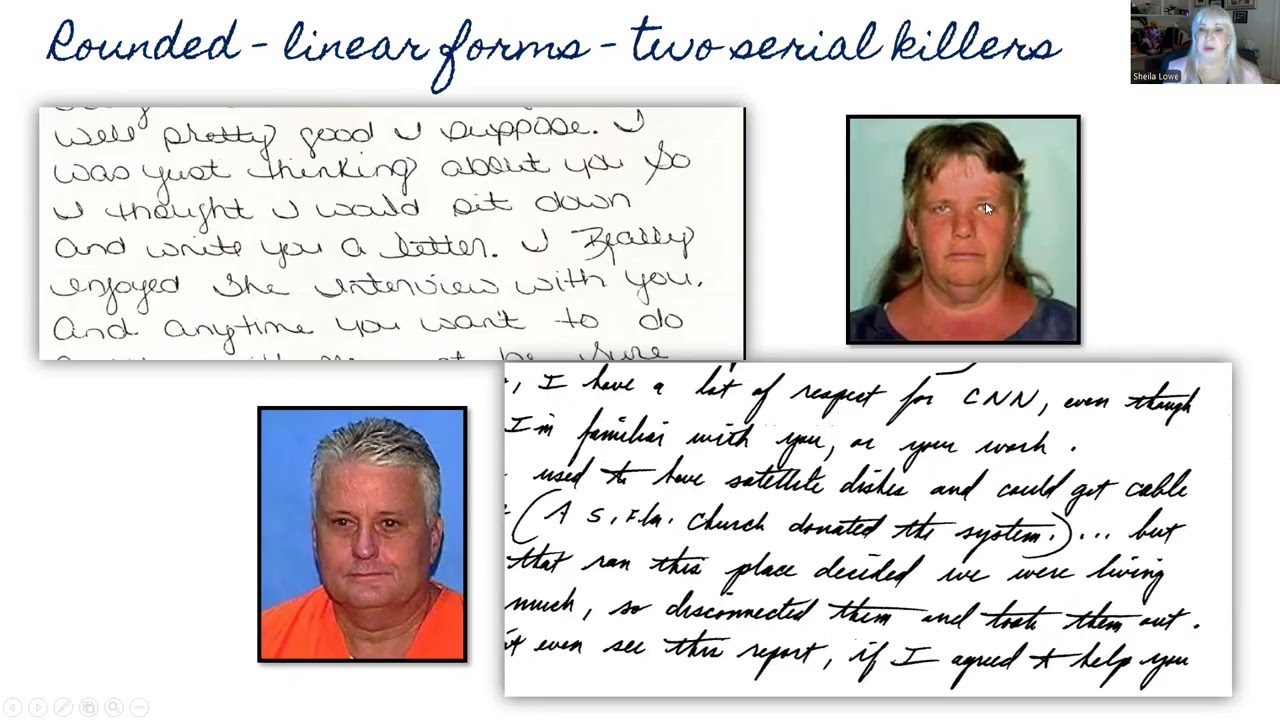 Rounded - linear forms - two serial killers
Sheila Lowe
well pretty good I suppose. I
was just thinking about you so
I thought I would sit down
and write you a letter. I Really
enjoyed the interview with you.
And anytime you want to do
be sure
, I have a lot of respect for CNN, even though
I'm familiar with you, or your work.
used to have satellite dishes and could get cable
(A S. Fla. Church donated the system.)... but
that ran this place decided we were living
much, so disconnected them and took them out.
even see this report, if I agreed to help you